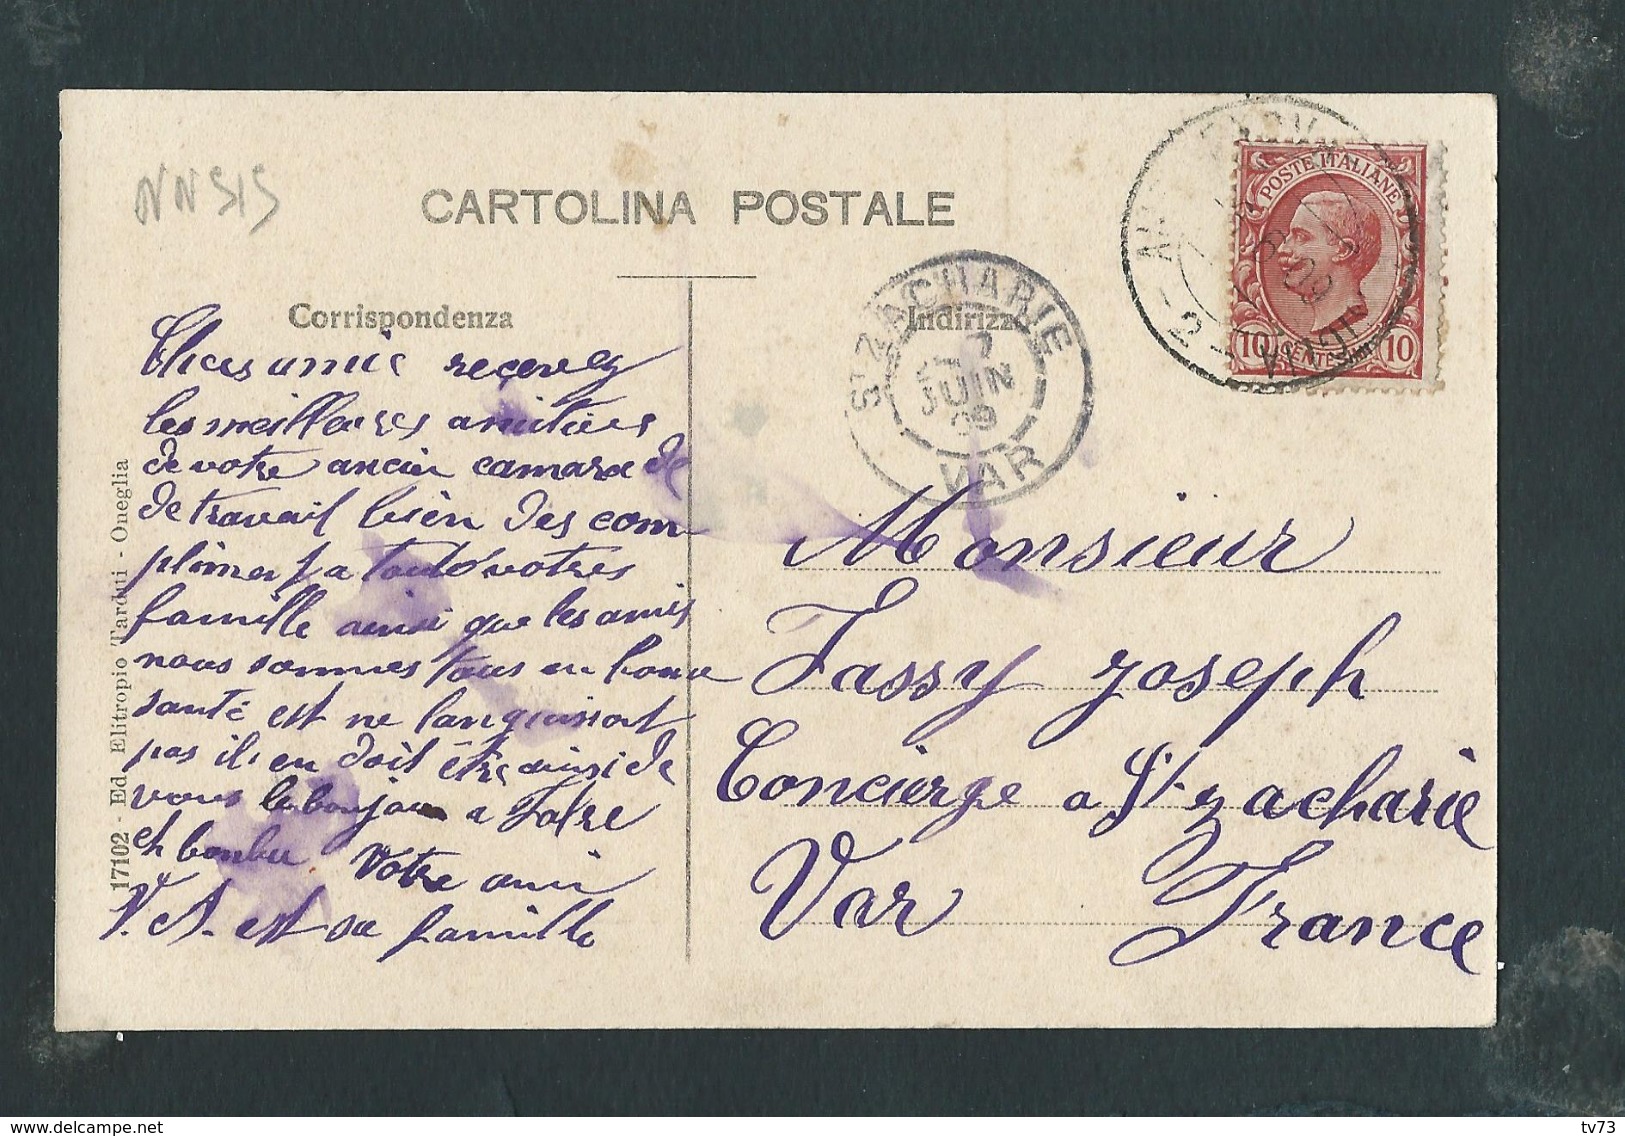 NN515
CARTOLINA POSTALE
Corrispondenza
Indirizz
POSTE ITALIANE
10 CENTESIMI 10
STE ZACHARIE
7
JUIN
09
VAR
2
amie recevez
les meilleures amitiées
de votre ancien camarade
de travail bien des com
pliment a toute votres
famille ainsi que les amis
nous sommes tous en bonne
santé est ne languissont
pas il en doit être ainsi de
vous le bonjour a
et Votre ami
V. A. est sa famille
Monsieur
Jassy Joseph
Concierge a St Zacharie
Var France
17102 - Ed. Elitropio Tardui - Oneglia
delcampe.net
tv73